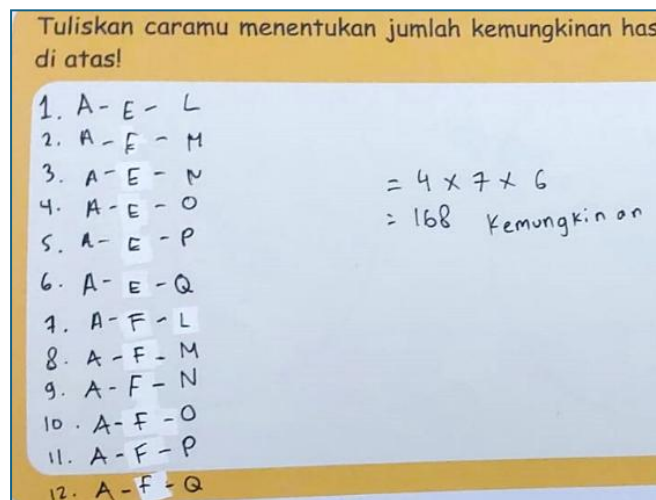 Tuliskan caramu menentukan jumlah kemungkinan has
di atas!
1. A - E - L
2. A - F - M
3. A - E - N
4. A - E - O
5. A - E - P
6. A - E - Q
7. A - F - L
8. A - F - M
9. A - F - N
10. A - F - O
11. A - F - P
12. A - F - Q
= 4 x 7 x 6
= 168 Kemungkinan